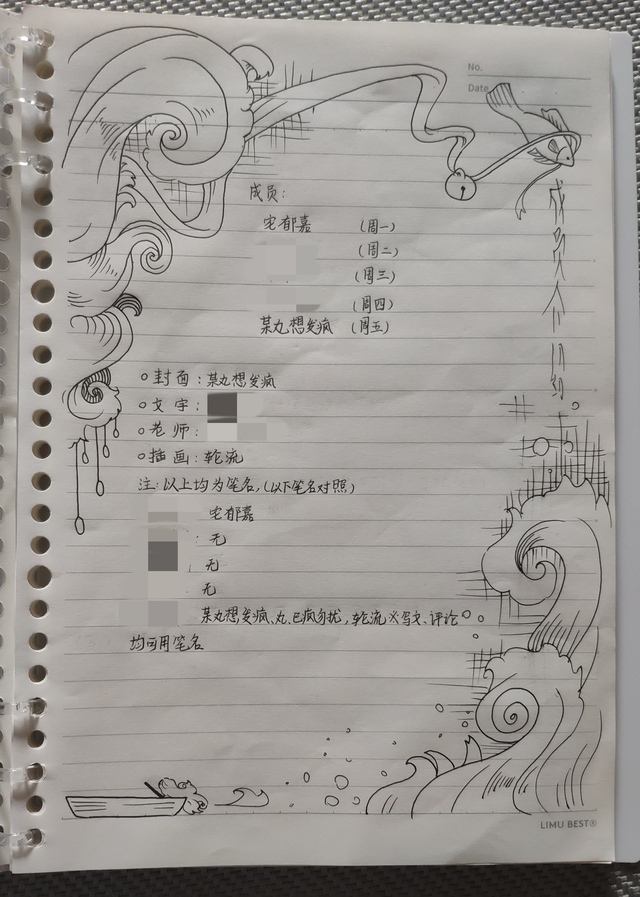 No.
Date
成员介绍
成员：
宅郁嘉 （周一）
（周二）
（周三）
（周四）
某丸想发疯 （周五）
封面：某丸想发疯
文字：
老师：
插画：轮流
注：以上均为笔名，（以下笔名对照）
宅郁嘉
：无
：无
无
某丸想发疯、丸、已疯勿扰，轮流写文、评论
均可用笔名
LIMU BEST®